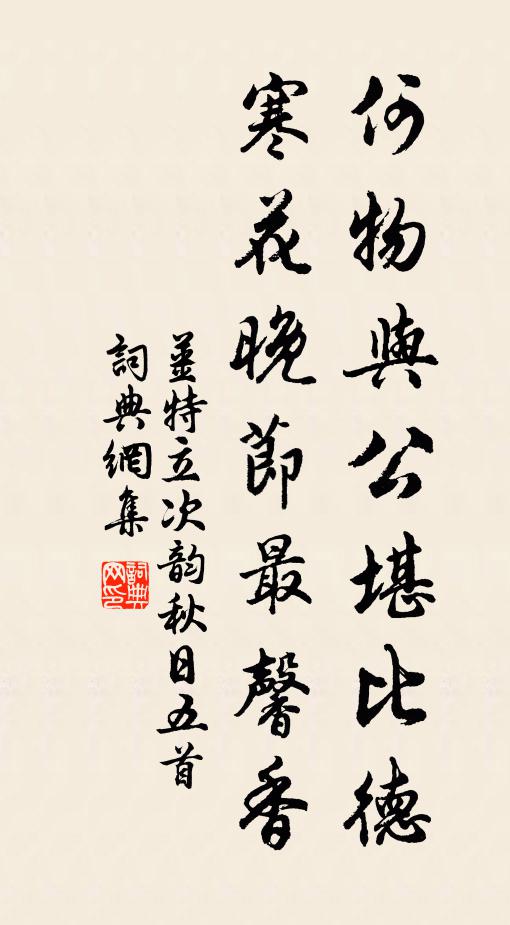 何物與公堪比德
寒花晚節最馨香
薑特立次韵秋日五首
詞典網集
詞典網印